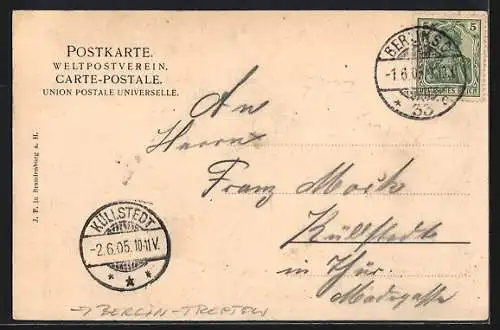 POSTKARTE.
WELTPOSTVEREIN.
CARTE-POSTALE.
UNION POSTALE UNIVERSELLE.
BERLIN S.O.
-1.6.05
* 33
5
J. F. in Brandenburg a. H.
An
Herrn
Franz Mock
Küllstedt
in Thür.
Madegasse
KÜLLSTEDT
-2.6.05. 10-11V.
* * *
→ BERLIN-TREPTOW